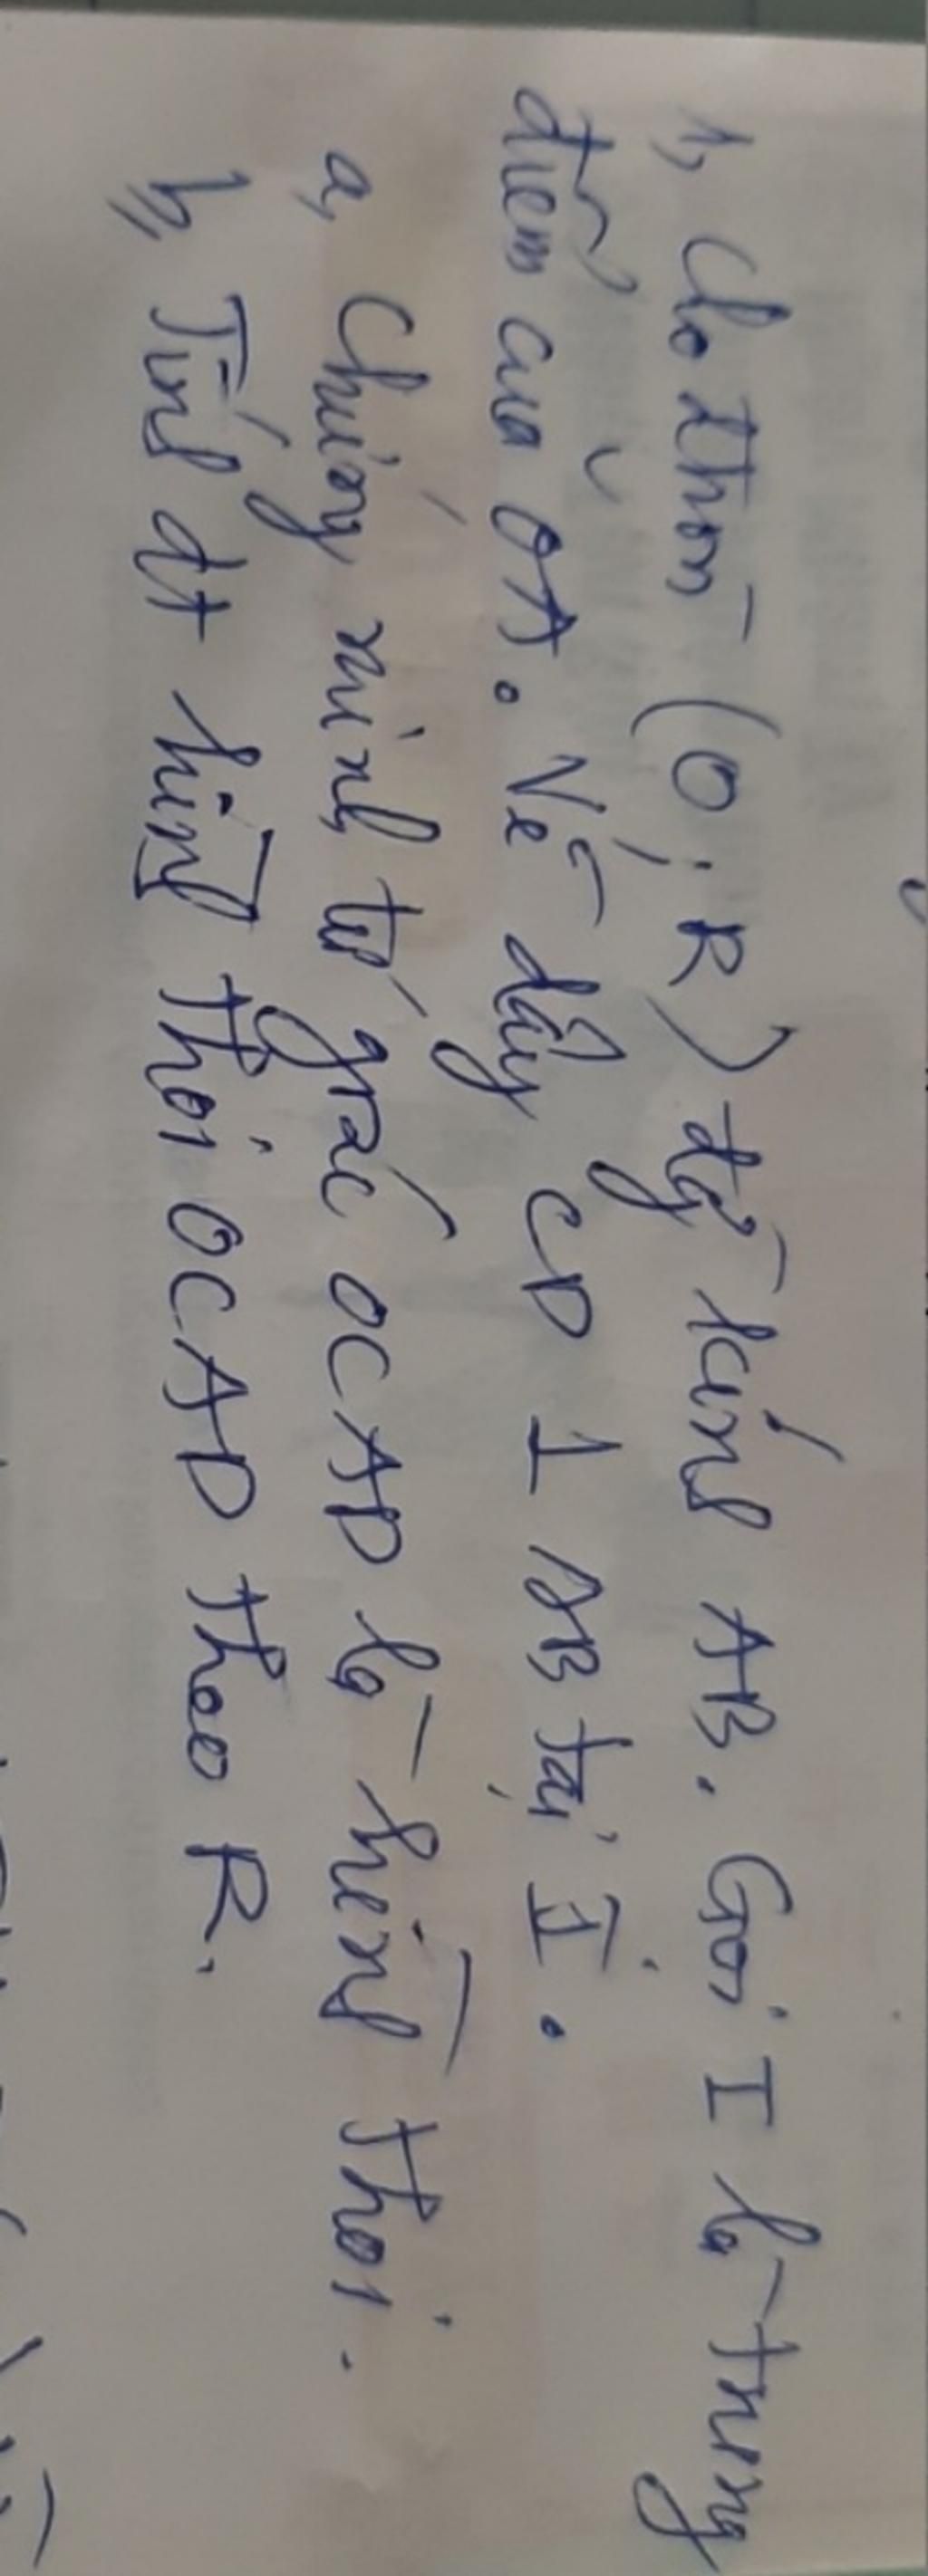 1, Cho đtròn (O; R) đg kính AB. Gọi I là trung
điểm của OA. Vẽ dây CD ⊥ AB tại I.
a, Chứng minh tứ giác OCAD là hình thoi.
b, Tính dt hình thoi OCAD theo R.